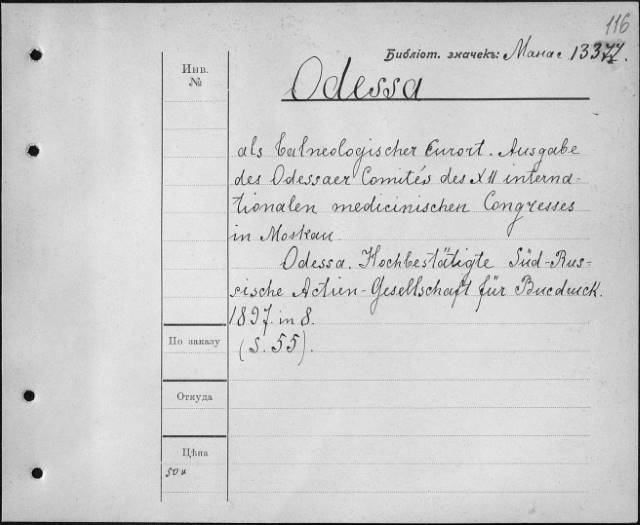 116
Библіот. значекъ: Манас 13377.
Инв.
№
Odessa
als balneologischer Curort. Ausgabe
des Odessaer Comités des XII interna-
tionalen medicinischen Congresses
in Moskau
Odessa. Hochbestätigte Süd-Rus-
sische Actien-Gesellschaft für Bucdruck.
1897. in 8.
(S. 55).
По заказу
Откуда
Цѣна
50к